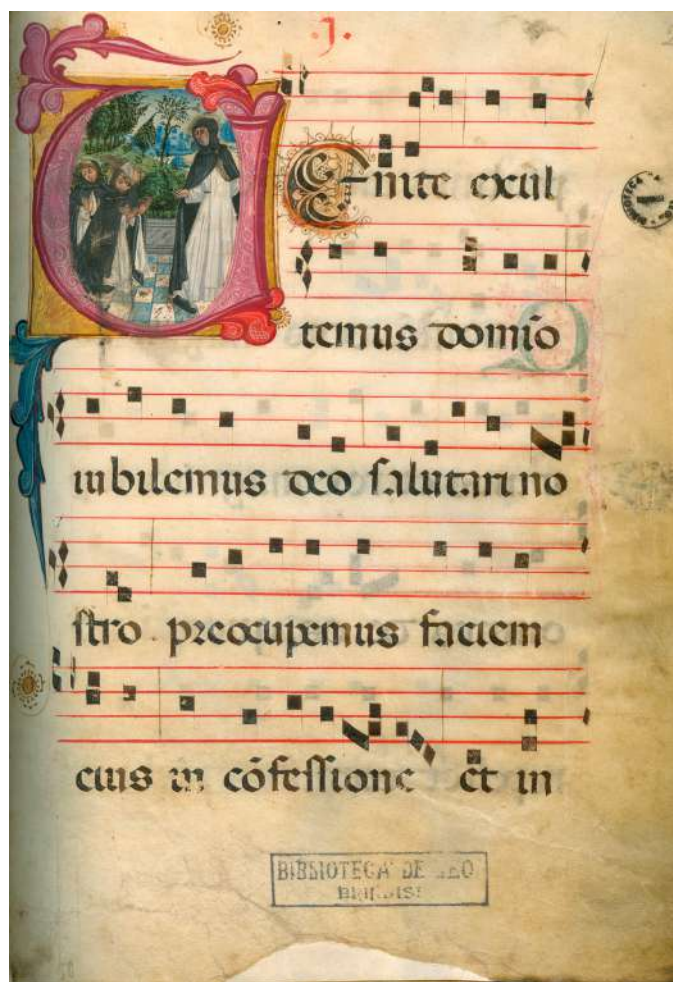 .j.
VEnite exul
temus domĩo
iubilemus deo salutari no
stro preocupemus faciem
eius in cõfessione et in
BIBLIOTECA DE LEO
BRINDISI
BIBLIOTECA